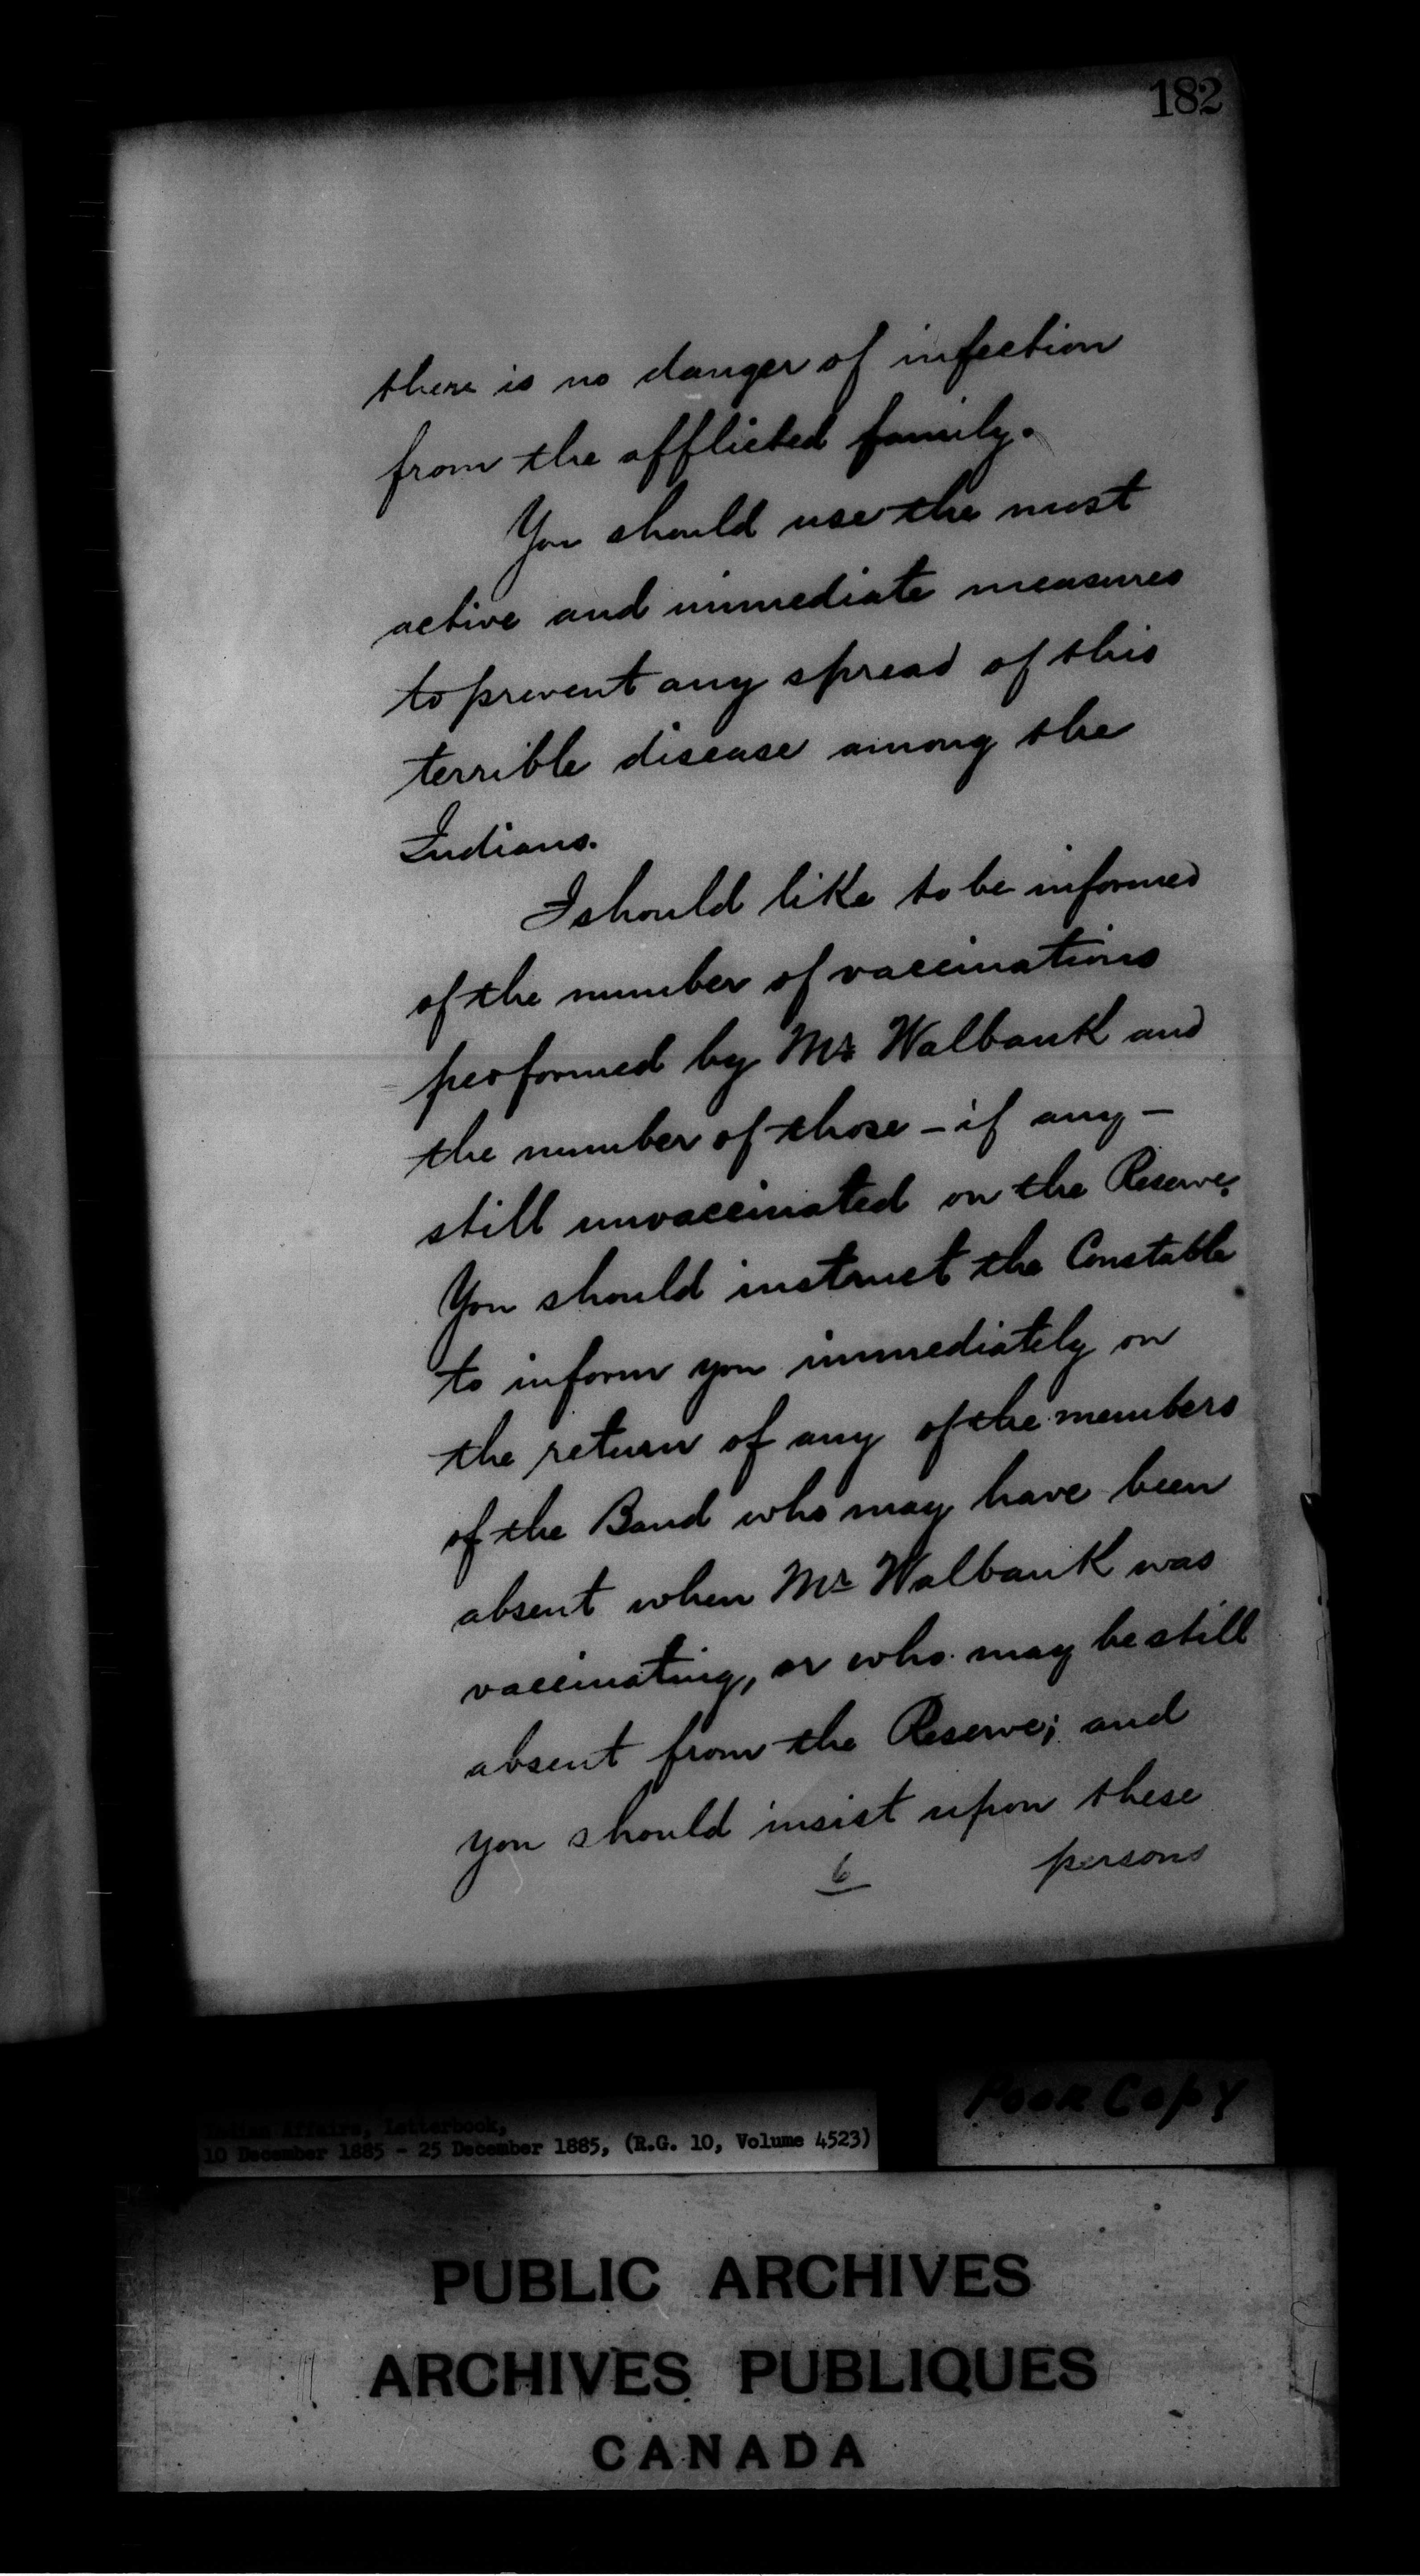 182
there is no danger of infection
from the afflicted family.
You should use the most
active and immediate measures
to prevent any spread of this
terrible disease among the
Indians.
I should like to be informed
of the number of vaccinations
performed by Mr Walbank and
the number of those - if any -
still unvaccinated on the Reserve.
You should instruct the Constable
to inform you immediately on
the return of any of the members
of the Band who may have been
absent when Mr Walbank was
vaccinating, or who may be still
absent from the Reserve; and
you should insist upon these
6 persons
Indian Affairs, Letterbook,
10 December 1885 - 25 December 1885, (R.G. 10, Volume 4523)
Poor Copy
PUBLIC ARCHIVES
ARCHIVES PUBLIQUES
CANADA